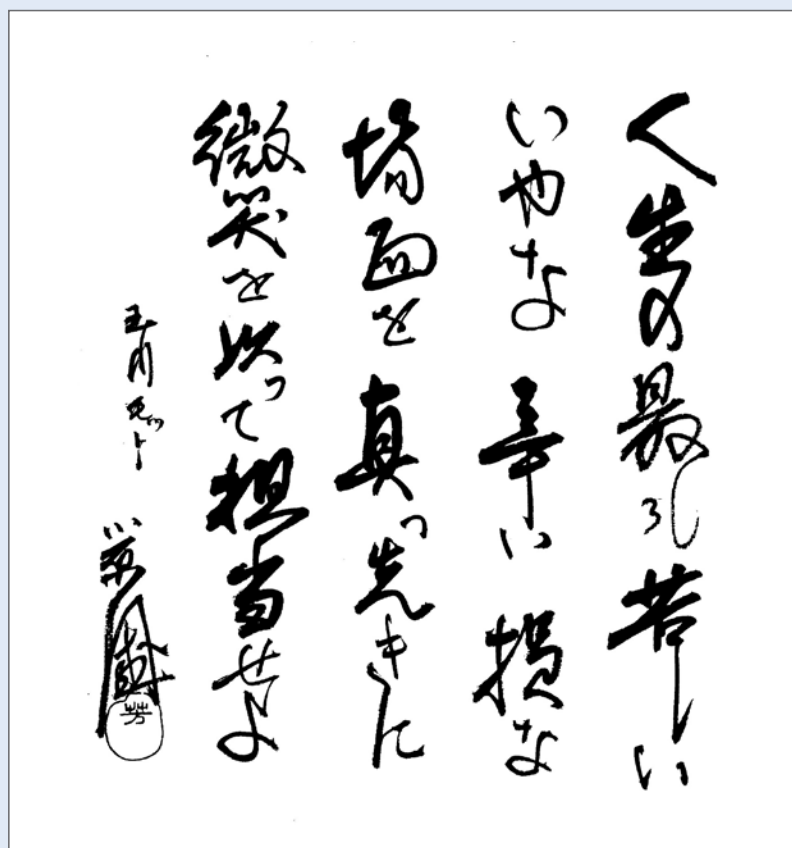 人生の最も苦しい
いやな辛い損な
場面を真っ先きに
微笑を以って担当せよ
玉川
小原國芳